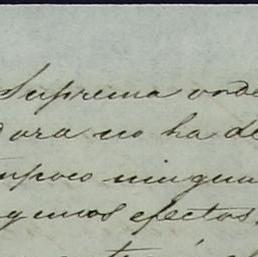 Suprema orde
dora no ha de
mpoco ningun
gunos efectos,